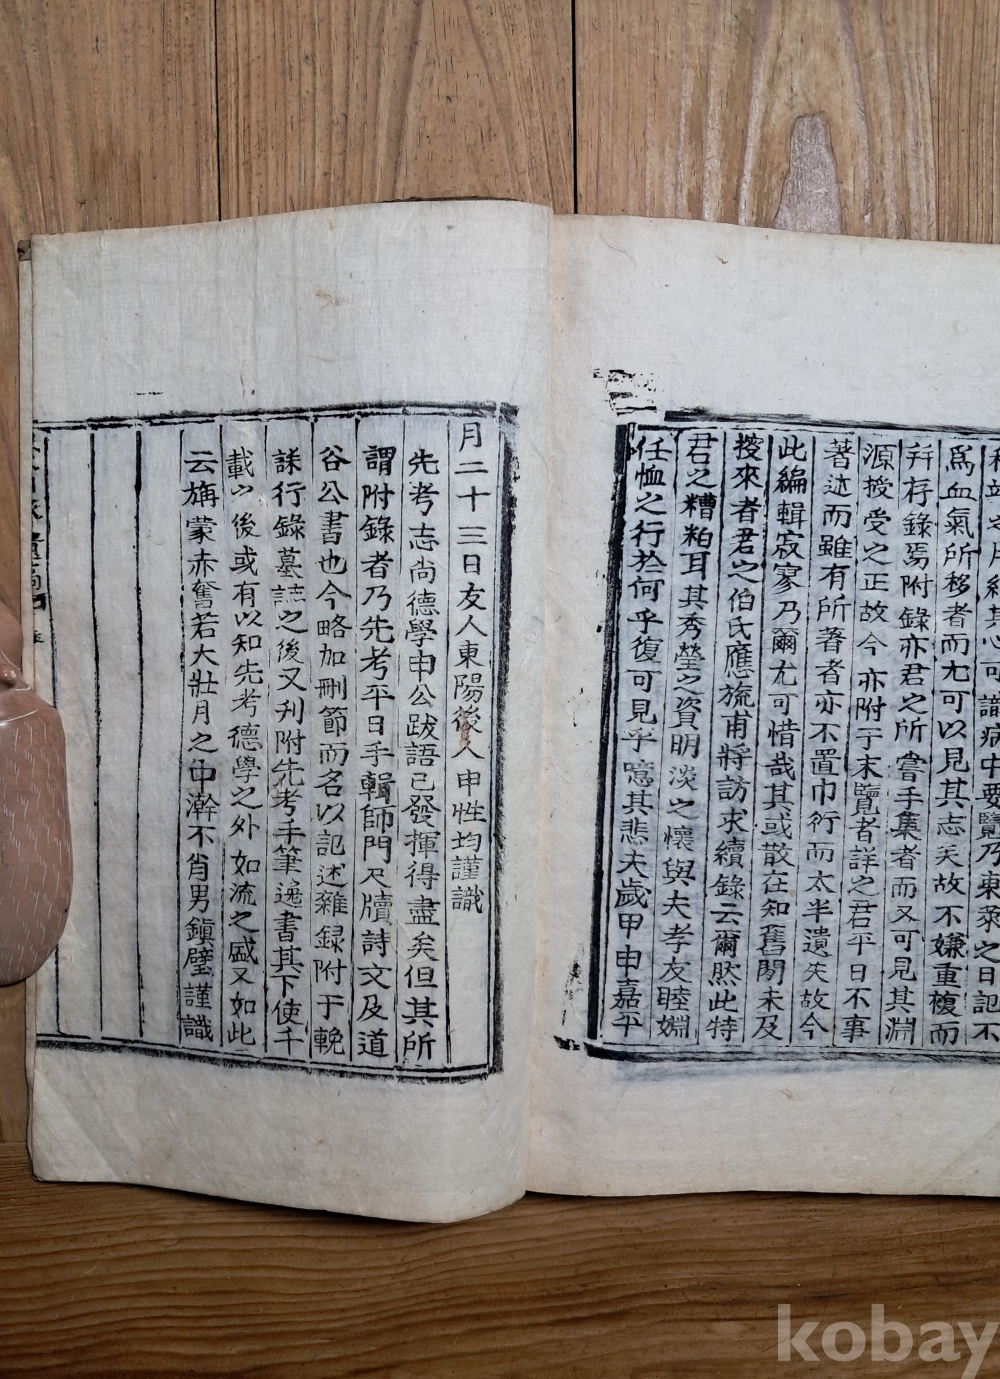 和竝之片紙其心可識病中要覽乃東萊之日記不
爲血氣所移者而尤可以見其志矣故不嫌重複而
幷存錄焉附錄亦君之所嘗手集者而又可見其淵
源授受之正故今亦附于末覽者詳之君平日不事
著述而雖有所著者亦不置巾衍而太半遺失故今
此編輯寂寥乃爾尤可惜哉其或散在知舊間未及
搜來者君之伯氏應旒甫將訪求續錄云爾然此特
君之糟粕耳其秀瑩之資明淡之懷與夫孝友睦婣
任恤之行於何乎復可見乎噫其悲夫歲甲申嘉平
月二十三日友人東陽後人申性均謹識
先考志尚德學申公跋語已發揮得盡矣但其所
謂附錄者乃先考平日手輯師門尺牘詩文及道
谷公書也今略加刪節而名以記述雜録附于輓
誄行錄墓誌之後又刋附先考手筆逸書其下使千
載以後或有以知先考德學之外如流之盛又如此
云旃蒙赤奮若大壯月之中澣不肖男鎭璧謹識
kobay